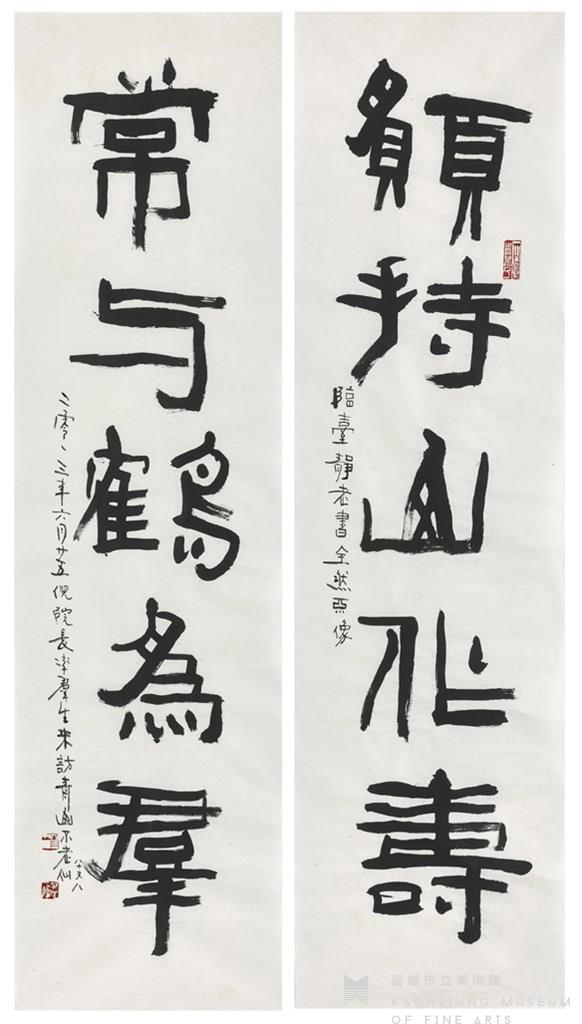 願持山作壽
臨臺靜老書全然不像
常与鶴為羣
二零一三年六月廿五倪院長率羣生來訪青不老仙
高雄市立美術館
KAOHSIUNG MUSEUM
OF FINE ARTS